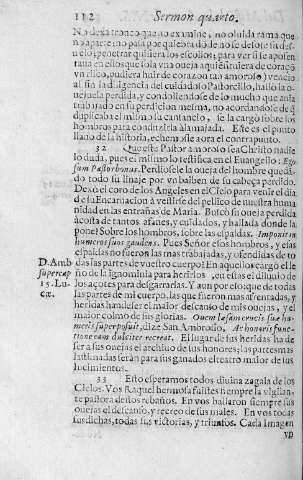 112 Sermon quarto.
No dexa tronco que no examine, no oluida rama que
no aparte; no para por quiebra do de no se desoje su des-
uelo; penetrar quisiera los escollos, para ver si se aposen
taua en ellos que sola vna oueja aquien diera de coraçõ
vn risco, pudiera huir de corazon tan amoroso; venció
al fin la diligencia del cuidadoso Pastorcillo, hallò la o-
uejuela perdida, y condoliendose de lo mucho que auia
trabajado en su perdicion mesma, no acordandose de q̃
duplicaua el mismo su cansancio, se la cargò sobre los
hombros para conduzirla à la majada. Este es el punto
llano de la historia, echemosle aora el contrapunto.
32 Que este Pastor amoroso sea Christo nadie
lo duda, pues el mismo lo testifica en el Euangelio: Ego
sum Pastor bonus. Perdiosele la oueja del hombre queda-
do todo su linaje por vn baiben de su cabeça perdido.
Dexò el coro de los Angeles en el Cielo para venir el dia
de su Encarnacion à vestirse del pellico de nuestra huma
nidad en las entrañas de Maria. Buscò su oueja perdida
acosta de tantos afanes, y cuidados, y hallada donde la
pone? Sobre los hombros, sobre las espaldas. Imponit in
humeros suos gaudens. Pues Señor esos hombros, y esas
espaldas no fueron las mas trabajadas, y ofendidas de to
D. Amb das las partes de vuestro cuerpo? En aquellos cargò el le
super cap ño de la ignominia para herirlos, en estas el diluuio de
15. Lu- los açotes para desgarrarlas. Y aun por eso: que de todas
cæ. las partes de mi cuerpo, las que fueron mas afrentadas, y
heridas han de ser el mayor descanso de mis ouejas, y el
mayor colmo de sus glorias. Ouem lasam crucis suæ hu-
meris superposuit, dize San Ambrosio,
el lugar de sus heridas ha de
ser a sus ouejas el archiuo de sus honores; las partes mas
lastimadas serán para sus ganados el teatro maior de sus
lucimientos.
33 Esto esperamos todos diuina zagala de los
Cielos. Vos Raquel hermosa fuistes siempre la vigilan-
te pastora de dos rebaños. En vos hallaron siempre sus
ouejas el descanso, y recreo de sus males. En vos todas
sus dichas, todas sus victorias, y triunfos. Cada Imagen